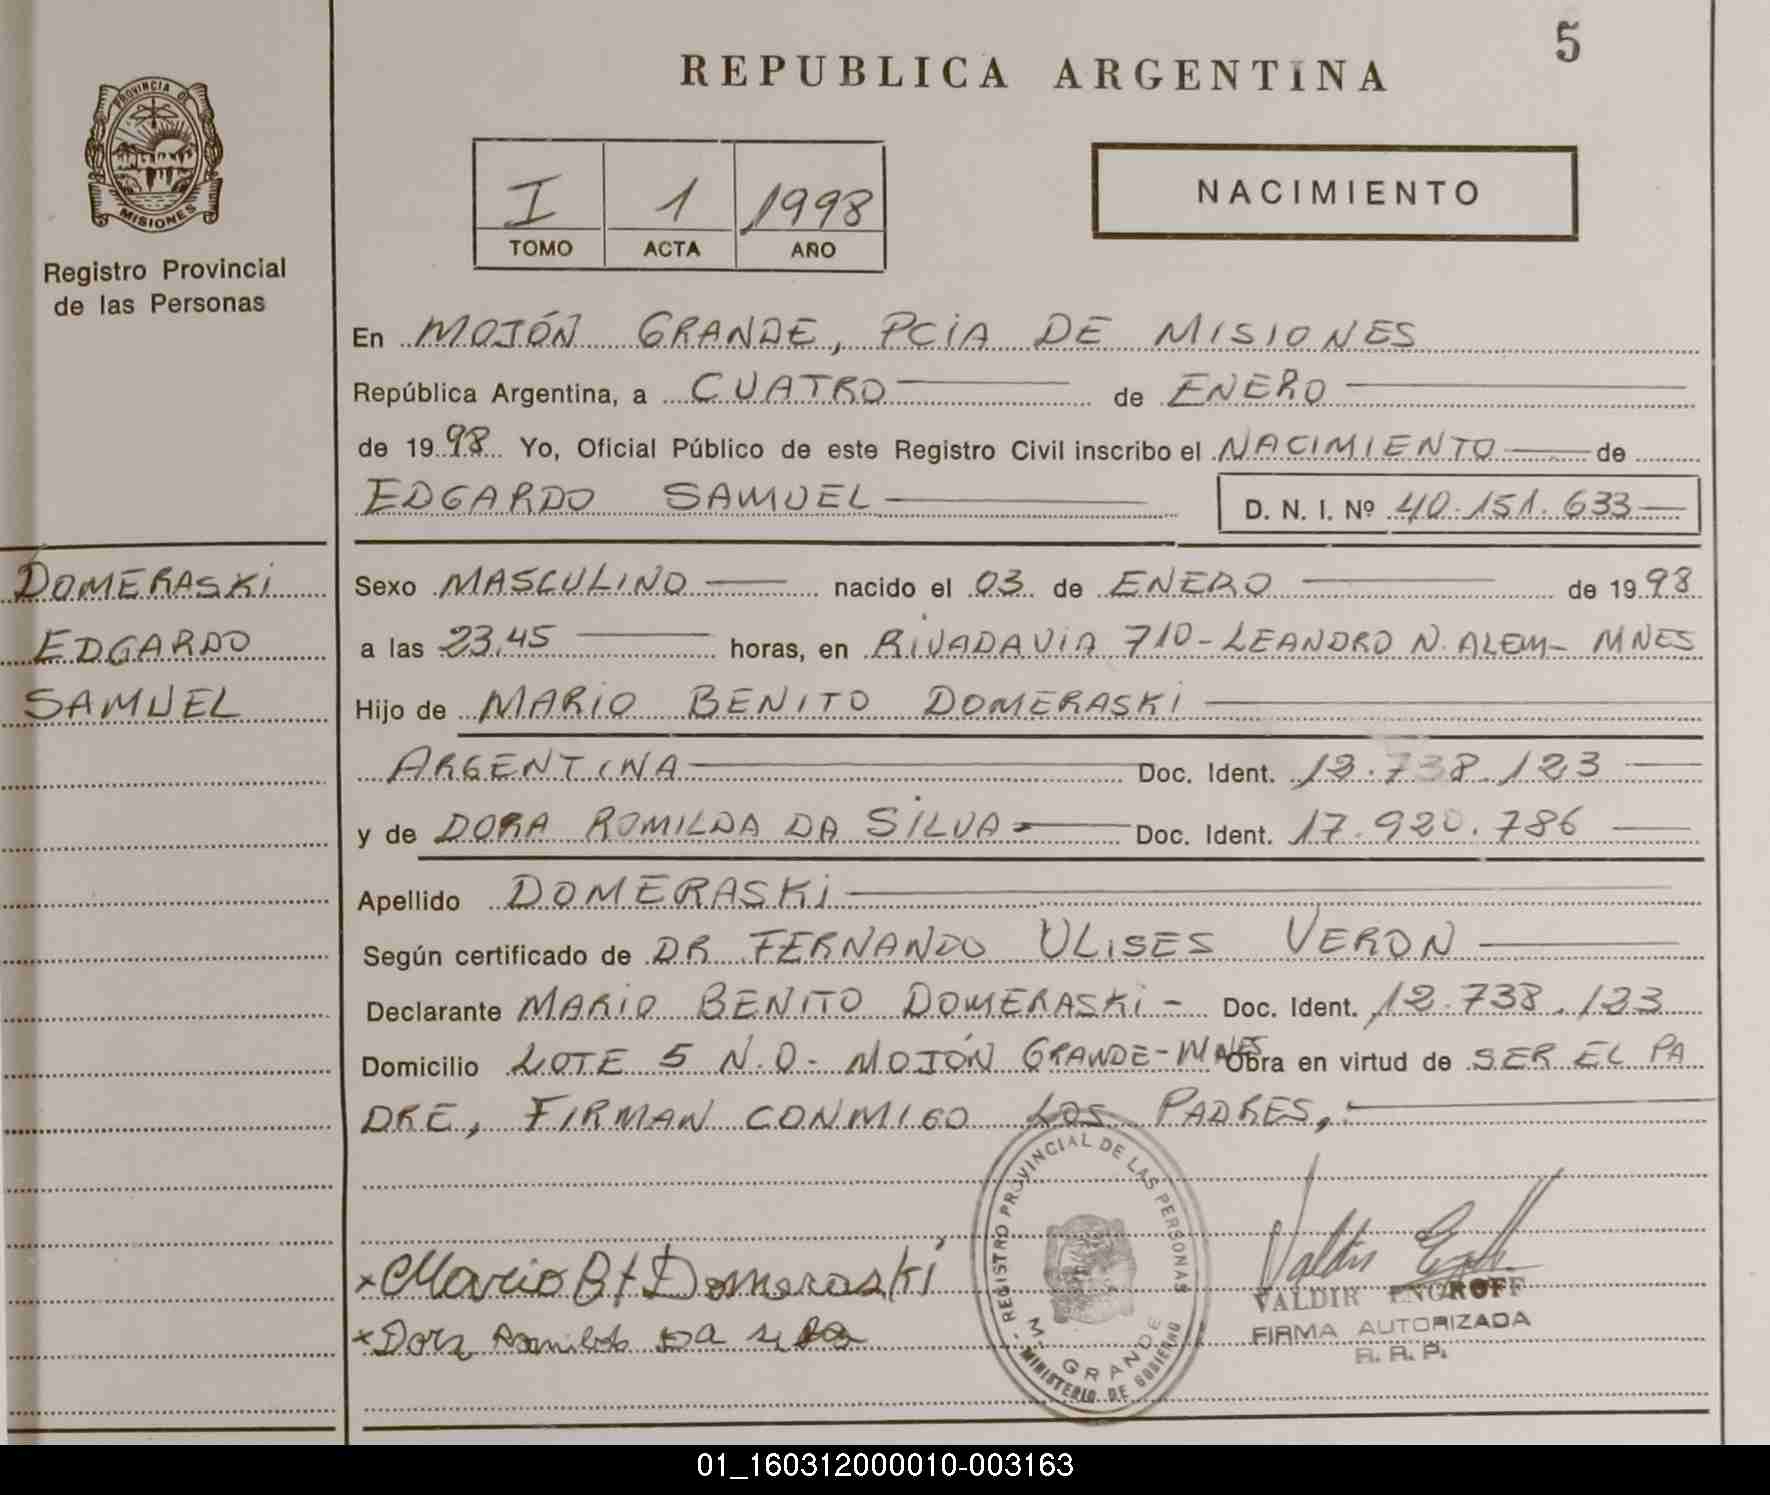 5
REPUBLICA ARGENTINA
PROVINCIA DE
MISIONES
Registro Provincial
de las Personas
I 1 1998
TOMO ACTA AÑO
NACIMIENTO
En MOJÓN GRANDE, PCIA DE MISIONES
República Argentina, a CUATRO de ENERO
de 1998 Yo, Oficial Público de este Registro Civil inscribo el NACIMIENTO de
EDGARDO SAMUEL D. N. I. Nº 40.151.633
DOMERASKI
EDGARDO
SAMUEL
Sexo MASCULINO nacido el 03 de ENERO de 1998
a las 23,45 horas, en RIVADAVIA 710 - LEANDRO N. ALEM - MNES
Hijo de MARIO BENITO DOMERASKI
ARGENTINA Doc. Ident. 12.738.123
y de DORA ROMILDA DA SILVA Doc. Ident. 17.920.786
Apellido DOMERASKI
Según certificado de DR FERNANDO ULISES VERON
Declarante MARIO BENITO DOMERASKI - Doc. Ident. 12.738.123
Domicilio LOTE 5 N.O - MOJÓN GRANDE - MNES Obra en virtud de SER EL PA
DRE, FIRMAN CONMIGO LOS PADRES,
REGISTRO PROVINCIAL DE LAS PERSONAS
M. GRANDE
MINISTERIO DE GOBIERNO
x Mario B Domeraski
x Dora Romilda Da Silva
Valdir
VALDIR ENGROFF
FIRMA AUTORIZADA
R. R. P.
01_160312000010-003163